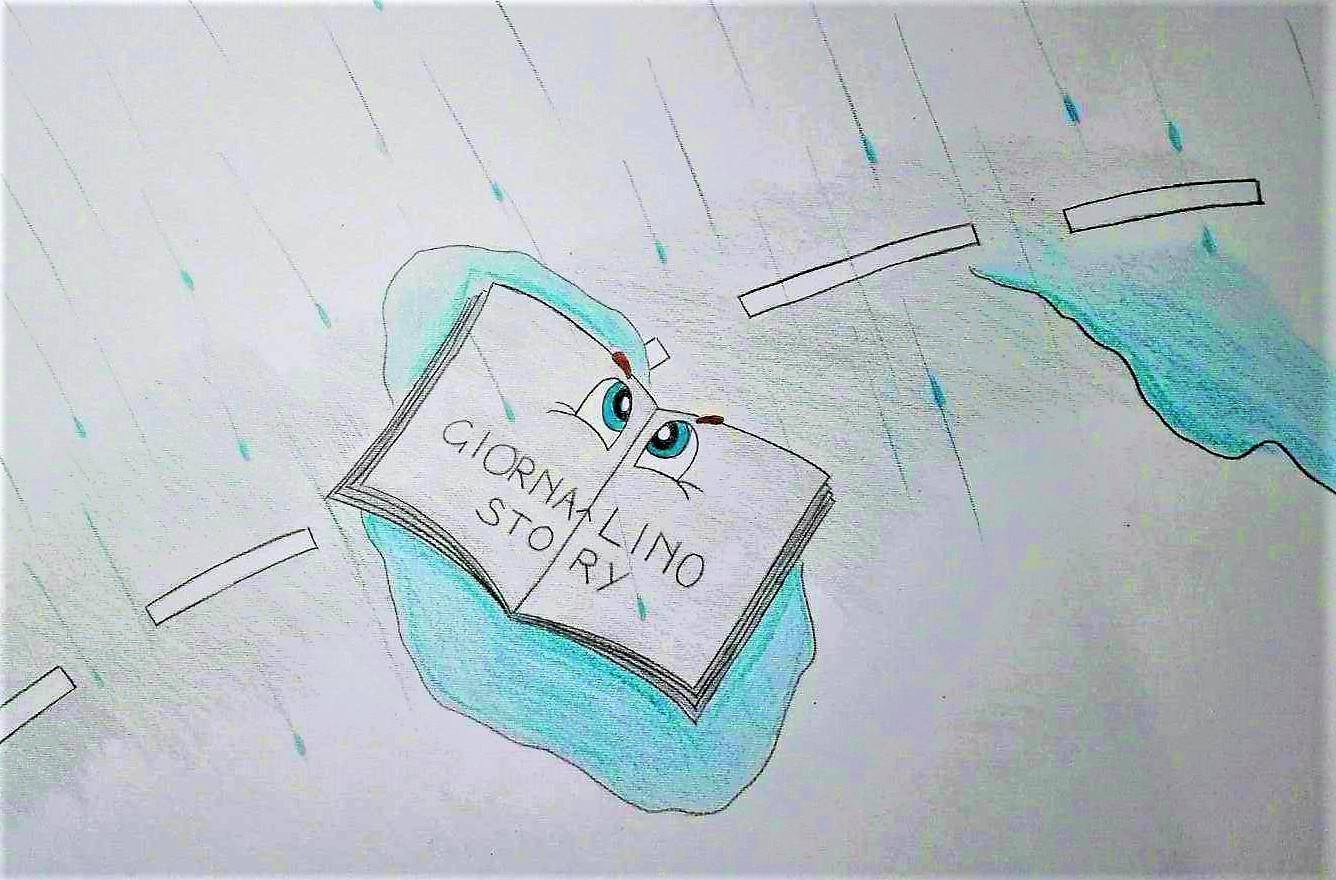 GIORNALINO
STORY